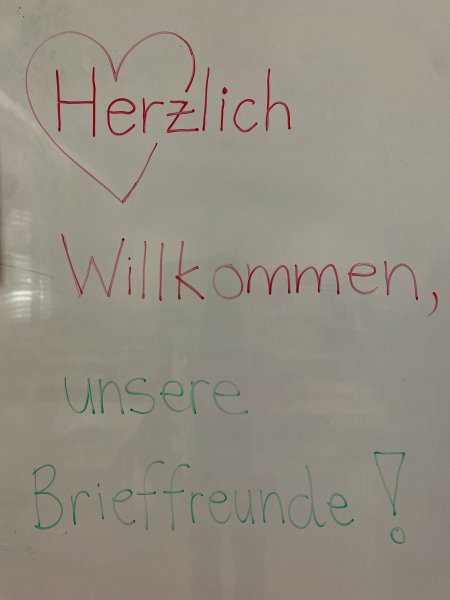 Herzlich
Willkommen,
unsere
Brieffreunde!